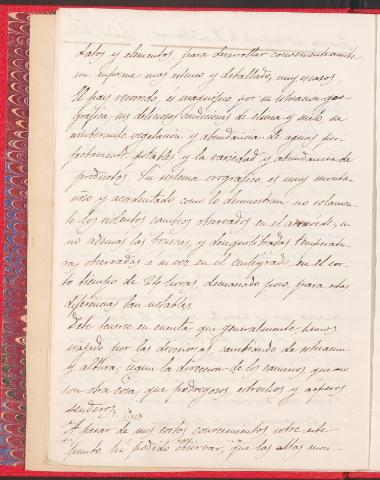 datos y elementos para desarrollar convenientemente
un informe mas estenso y detallado, muy escasos.
El pais recorrido, es magnifico, por su situacion geo-
grafica, sus deliciosas condiciones de clima y suelo, su
exuberante vegetacion y abundancia de aguas per-
fectamente potables y la variedad y abundancia de
productos. Su sistema orografico es muy monta-
ñoso y accidentado como lo demuestran, no solamen-
te los violentos cambios observados en el aneroide, si-
no ademas las bruscas, y desequilibradas temperatu-
ras observadas a su vez en el centigrado, en el cor-
to tiempo de 24 horas, demasiado poco, para estas
diferencias tan notables.
Debe tenerse en cuenta, que generalmente hemos
viajado por las divisorias, cambiando de situacion
y altura, segun la direccion de los caminos que no
son otra cosa, que pedregosos, estrechos y asperos
senderos.
A pesar de mis cortos conocimientos sobre este
punto, hé podido observar, que las altas mon-